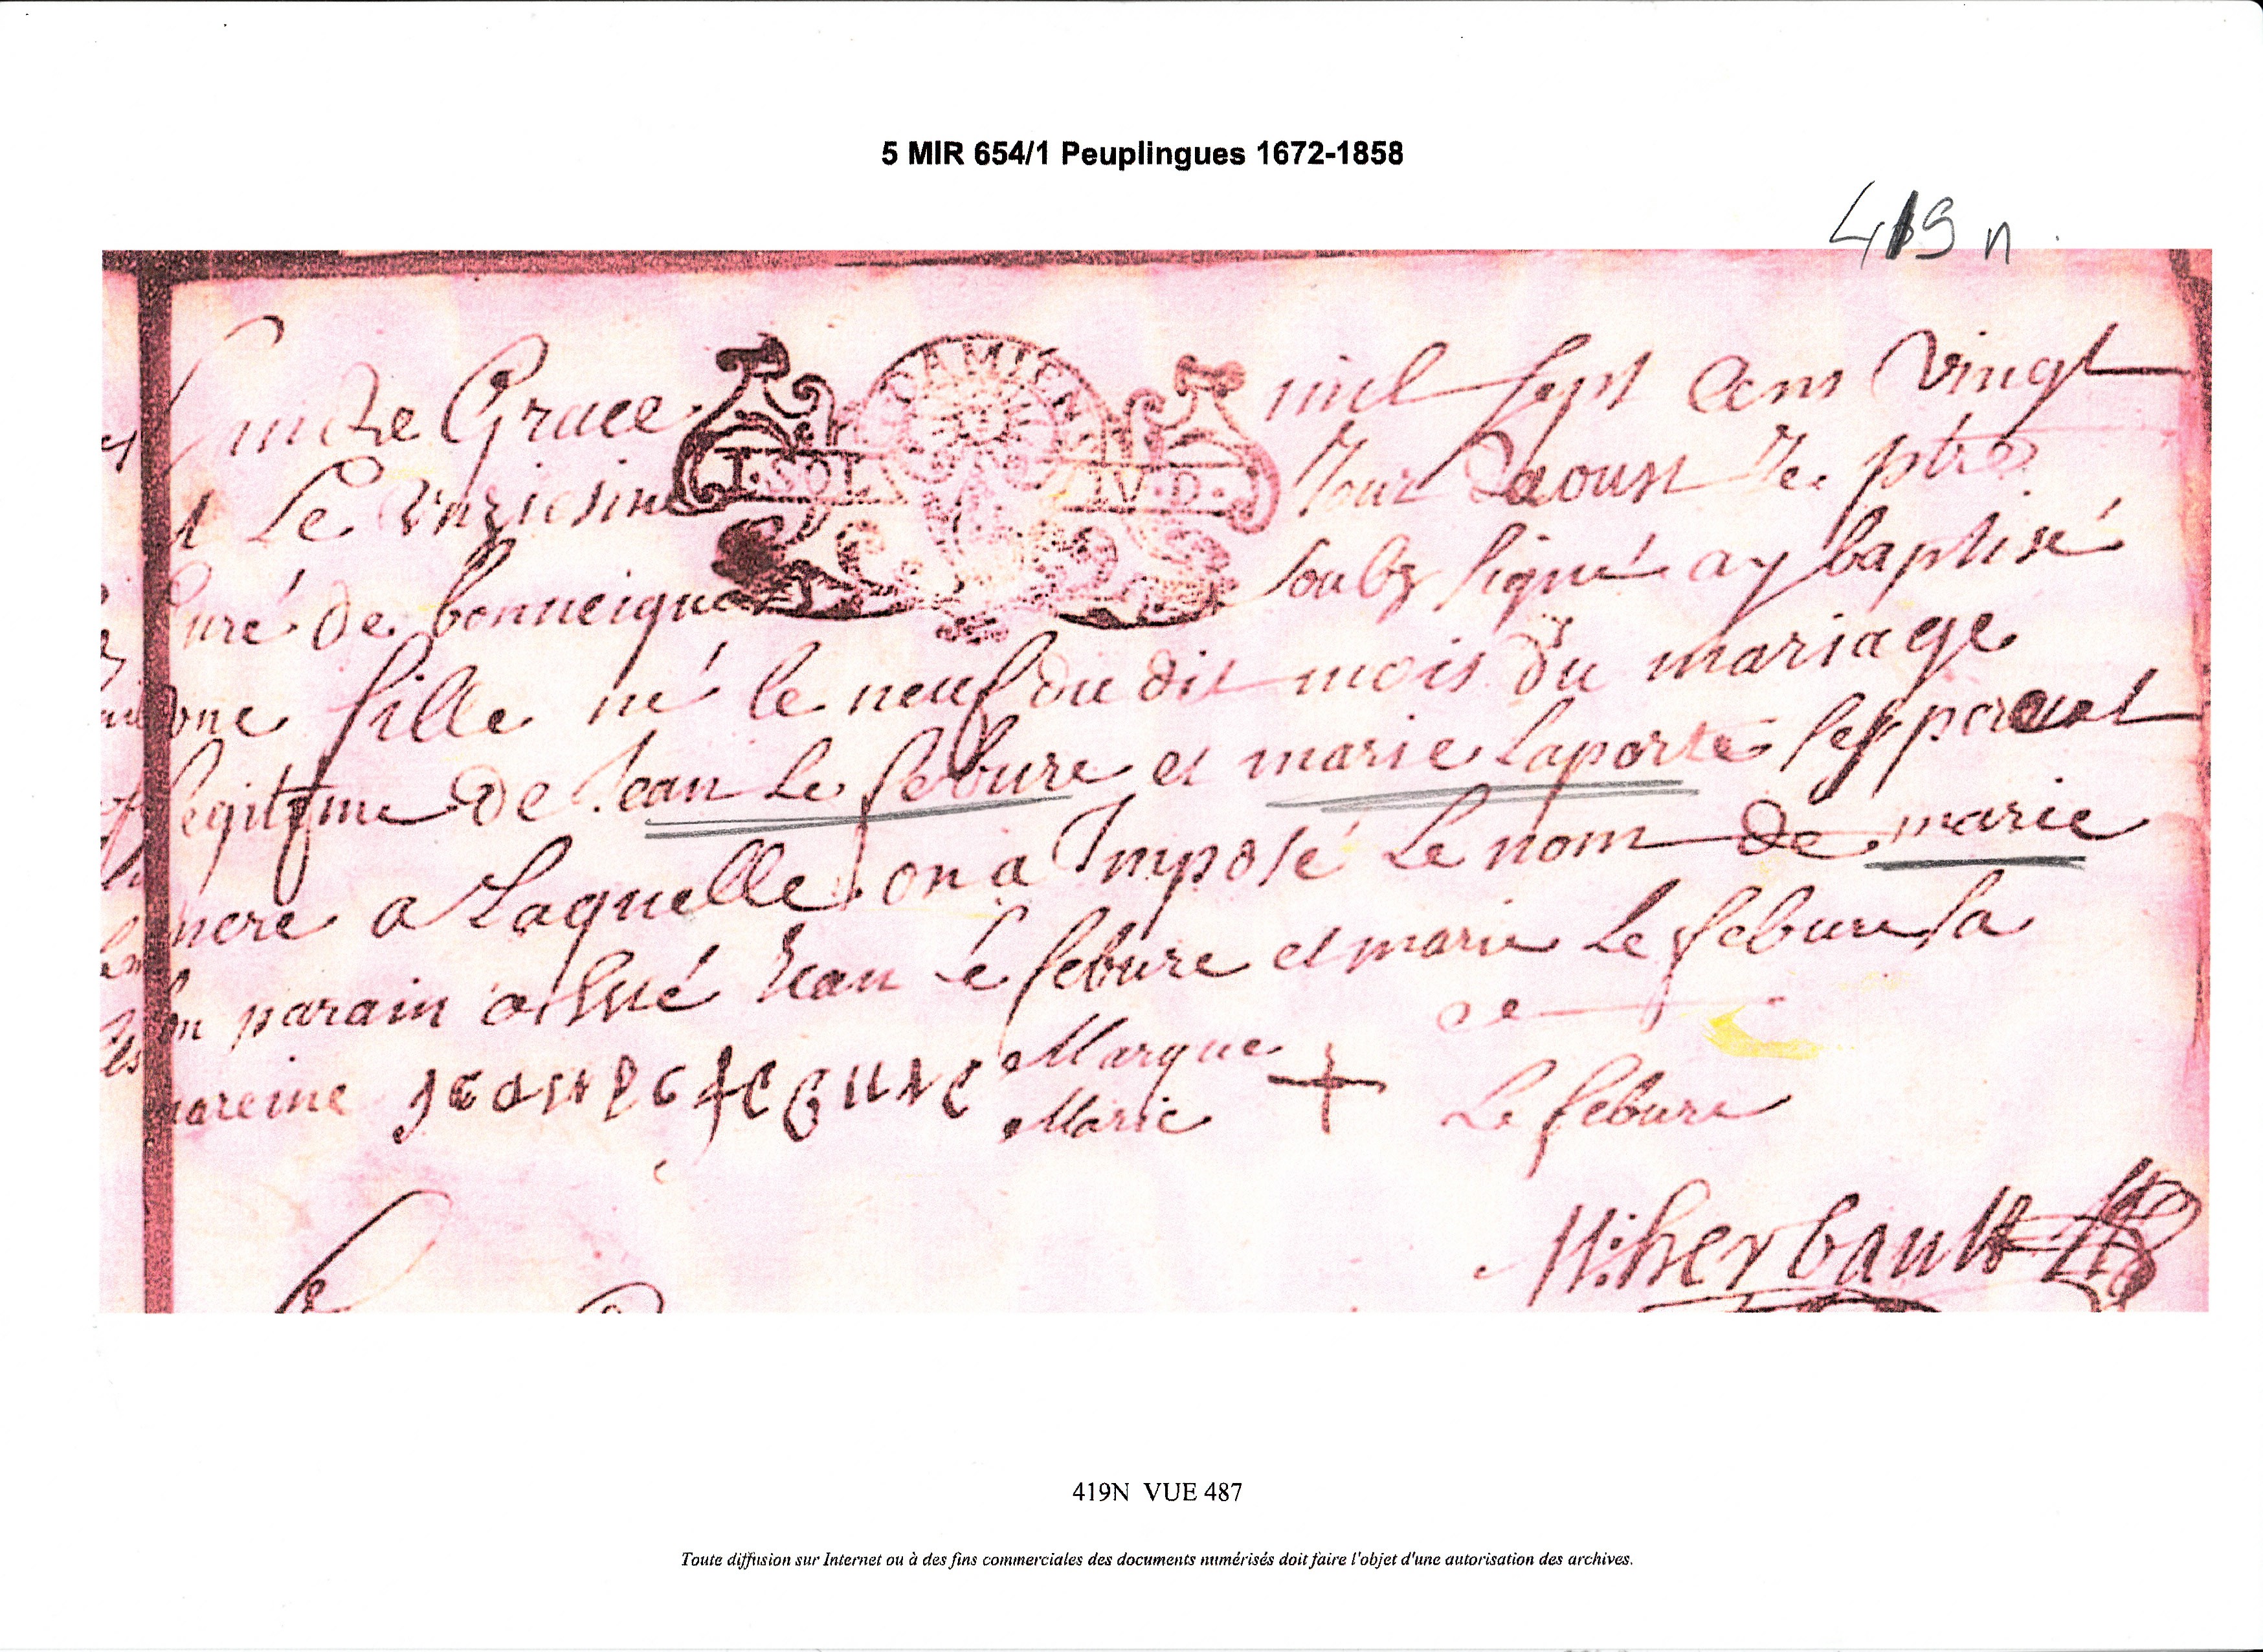 5 MIR 654/1 Peuplingues 1672-1858
419 n
Grace mil sept Cens vingt
et Le Jour Daoust Je ptre
Curé de bonneigue soubz signé ay baptisé
une fille né le neuf du dit mois du mariage
legityme de Jean Le febure et marie Laporte
mere a Laquelle on a Imposé Le nom de marie
parain a Jean Le febure et marie Le febure sa
mareine Jean Le febure Marque ce
Marie + Le febure
N: herbault
D AMIEN
I. SOL IV. D.
419N VUE 487
Toute diffusion sur Internet ou à des fins commerciales des documents numérisés doit faire l'objet d'une autorisation des archives.